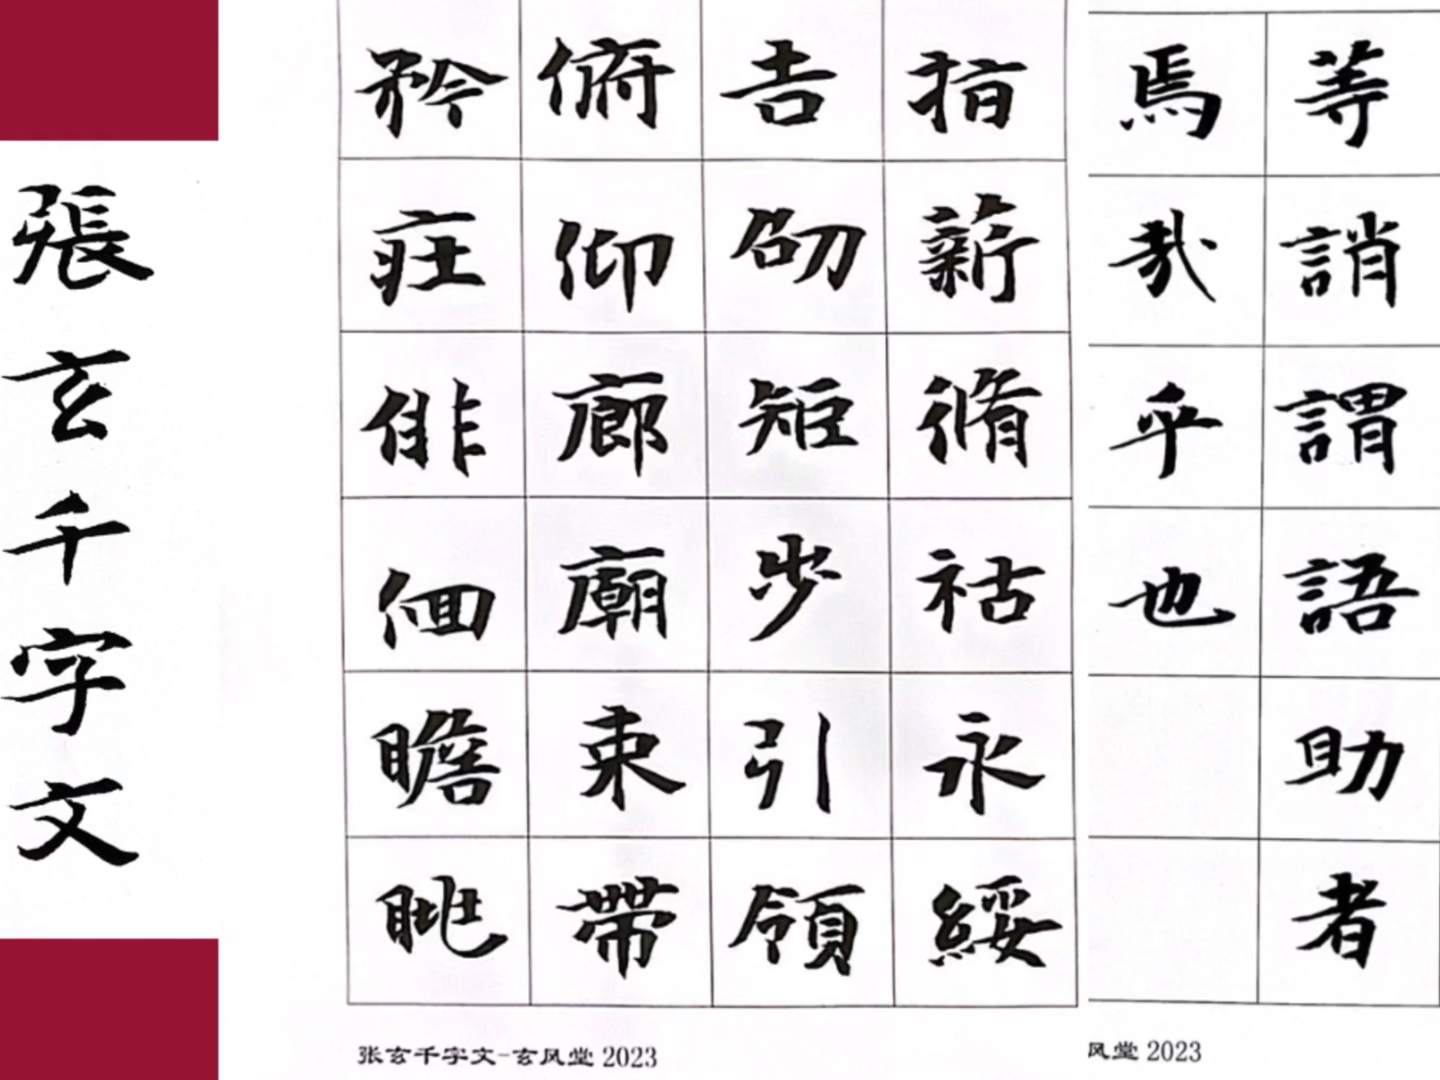 張玄千字文
指薪脩祜永綏
吉劭矩步引領
俯仰廊廟束帶
矜莊俳佪瞻眺
张玄千字文-玄风堂 2023
等誚謂語助者
焉哉乎也
风堂 2023